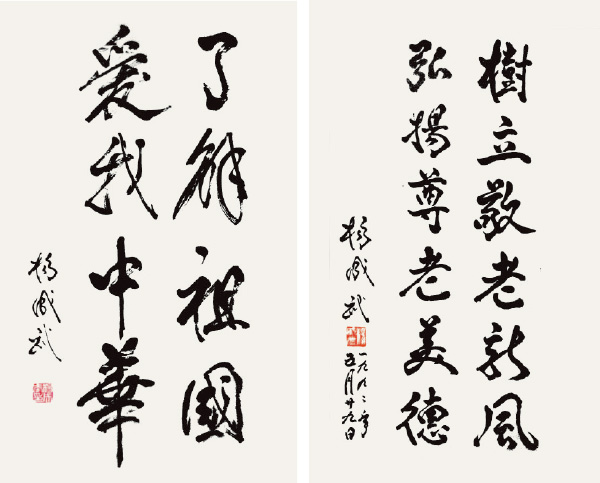 了解祖國
愛我中華
楊成武
樹立敬老新風
弘揚尊老美德
楊成武
一九九二年
五月十九日